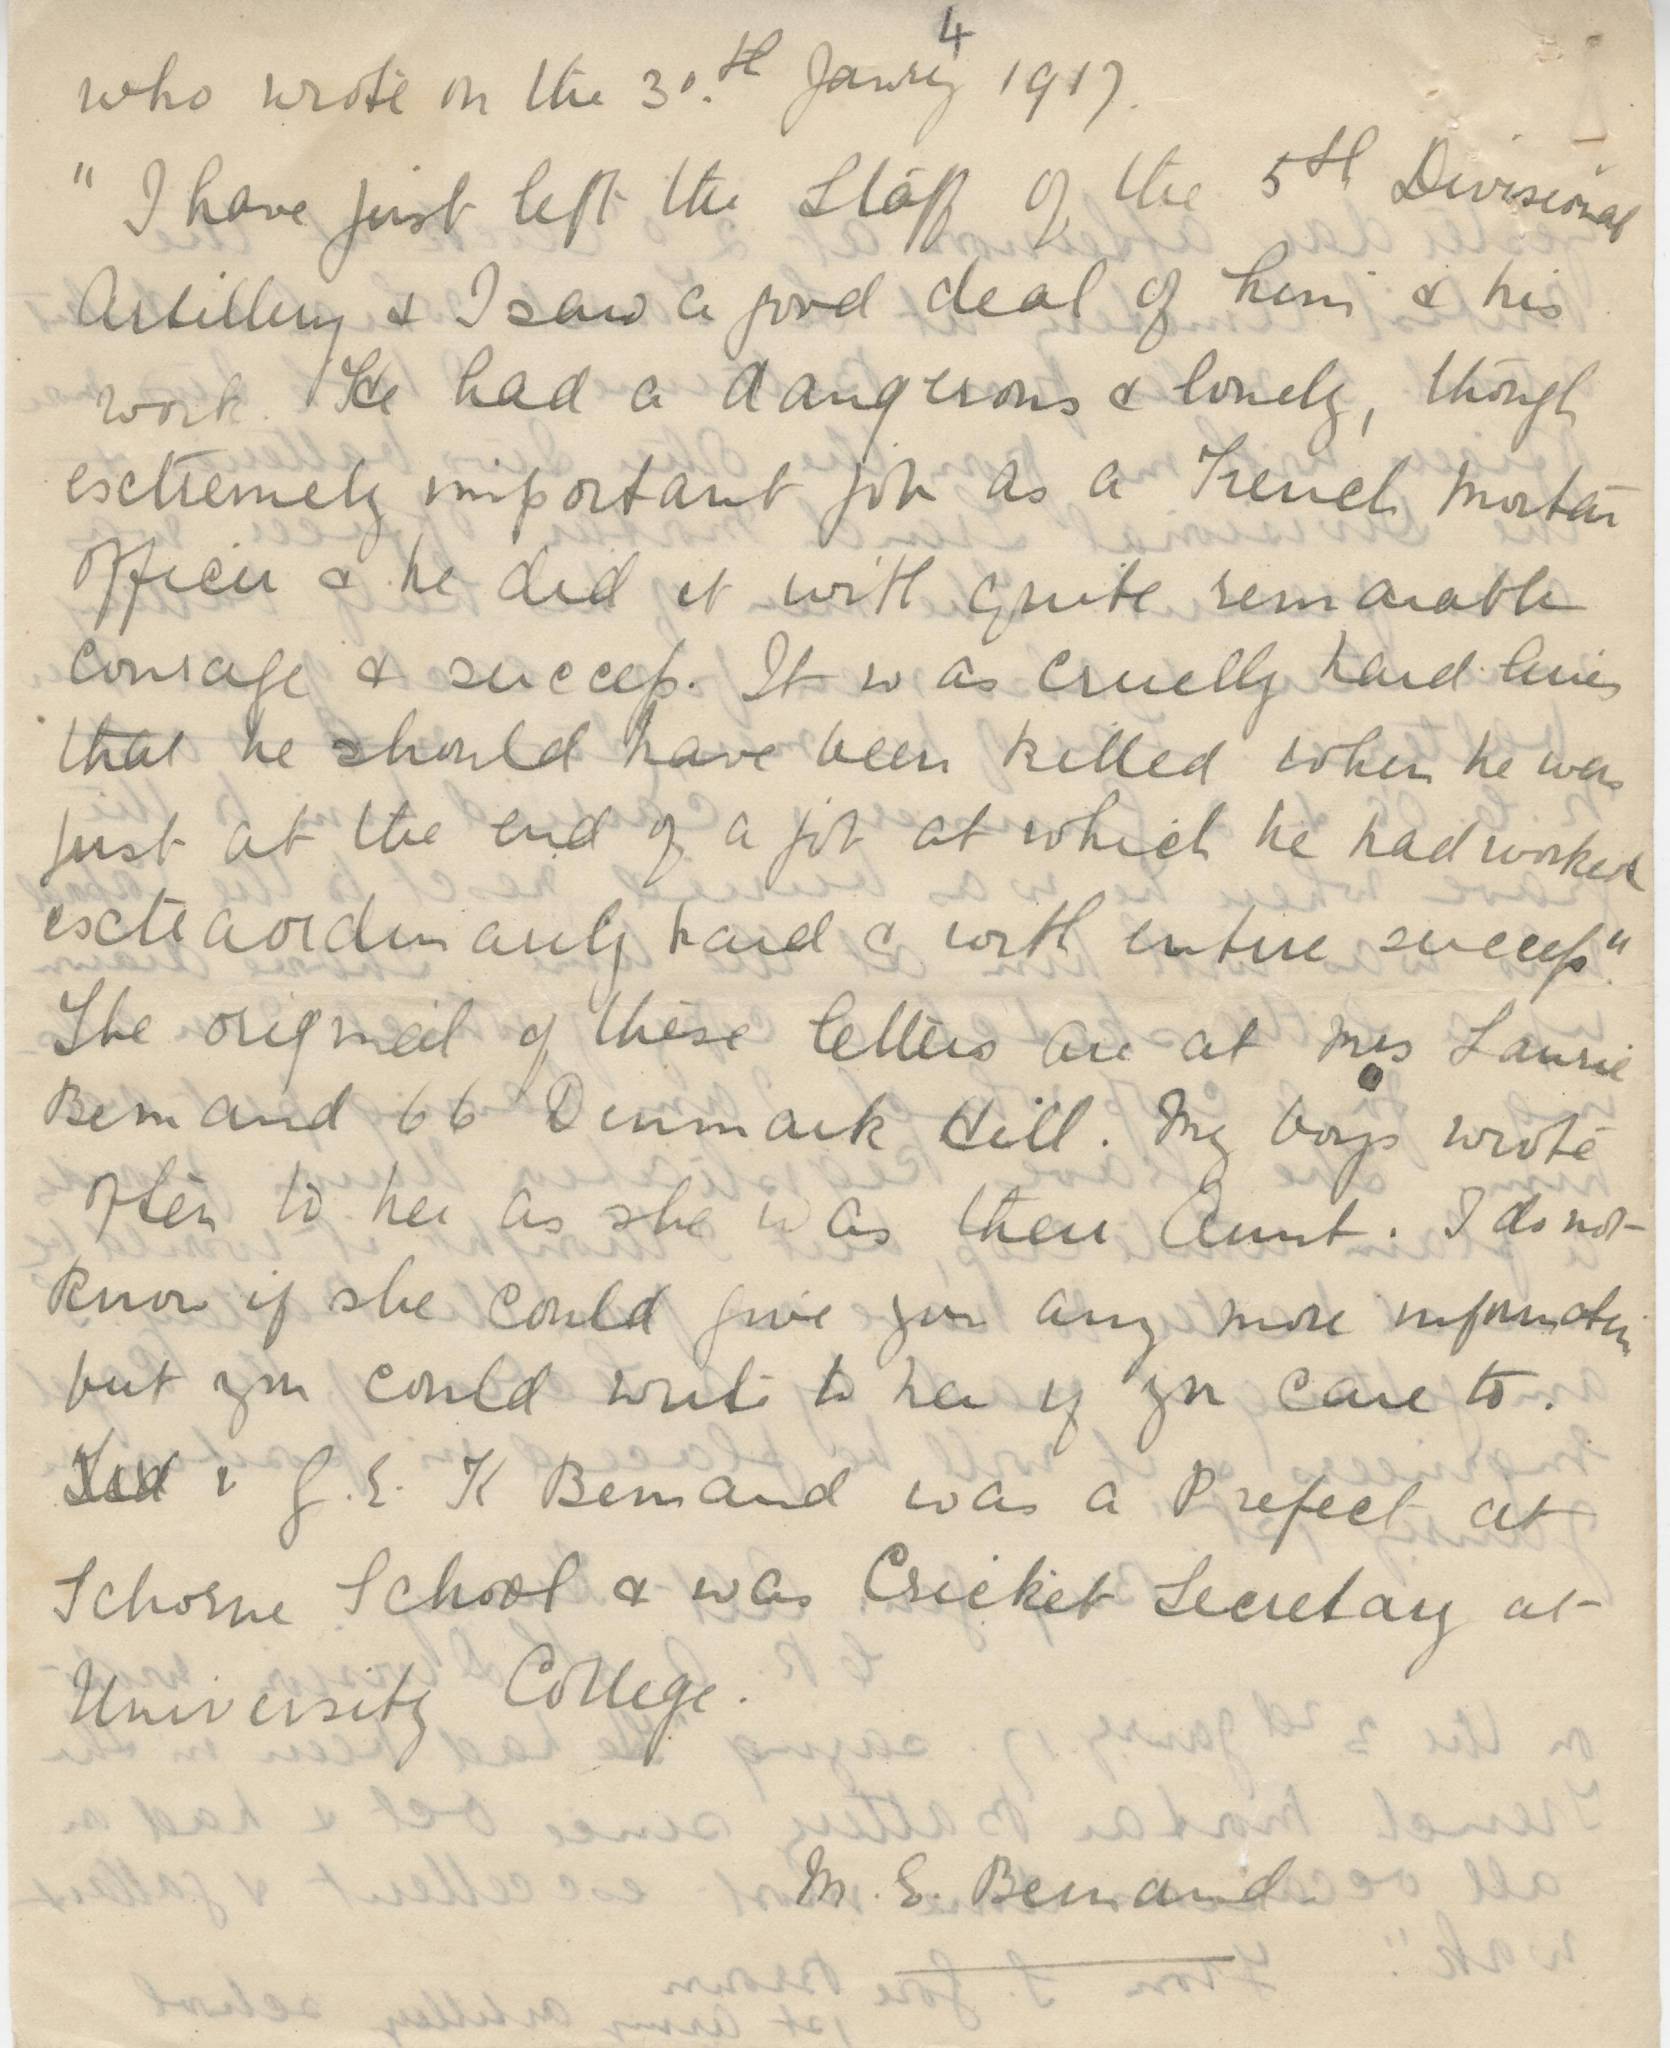 4
who wrote on the 30.th Janry 1917.
" I have just left the Staff of the 5th Divisional
Artillery & I saw a good deal of him & his
work. He had a dangerous & lonely, though
extremely important job as a Trench Mortar
Officer & he did it with quite remarkable
courage & success. It was cruelly hard lines
that he should have been killed when he was
just at the end of a job at which he had worked
extraordinarily hard & with entire success".
The original of these letters are at Mrs Laurie
Bemand 66 Denmark Hill. My boys wrote
often to her as she was their Aunt. I do not
know if she could give you any more information
but you could write to her if you care to.
G. E. K Bemand was a Prefect at
Schorne School & was Cricket Secretary at
University College.
M. E. Bemand